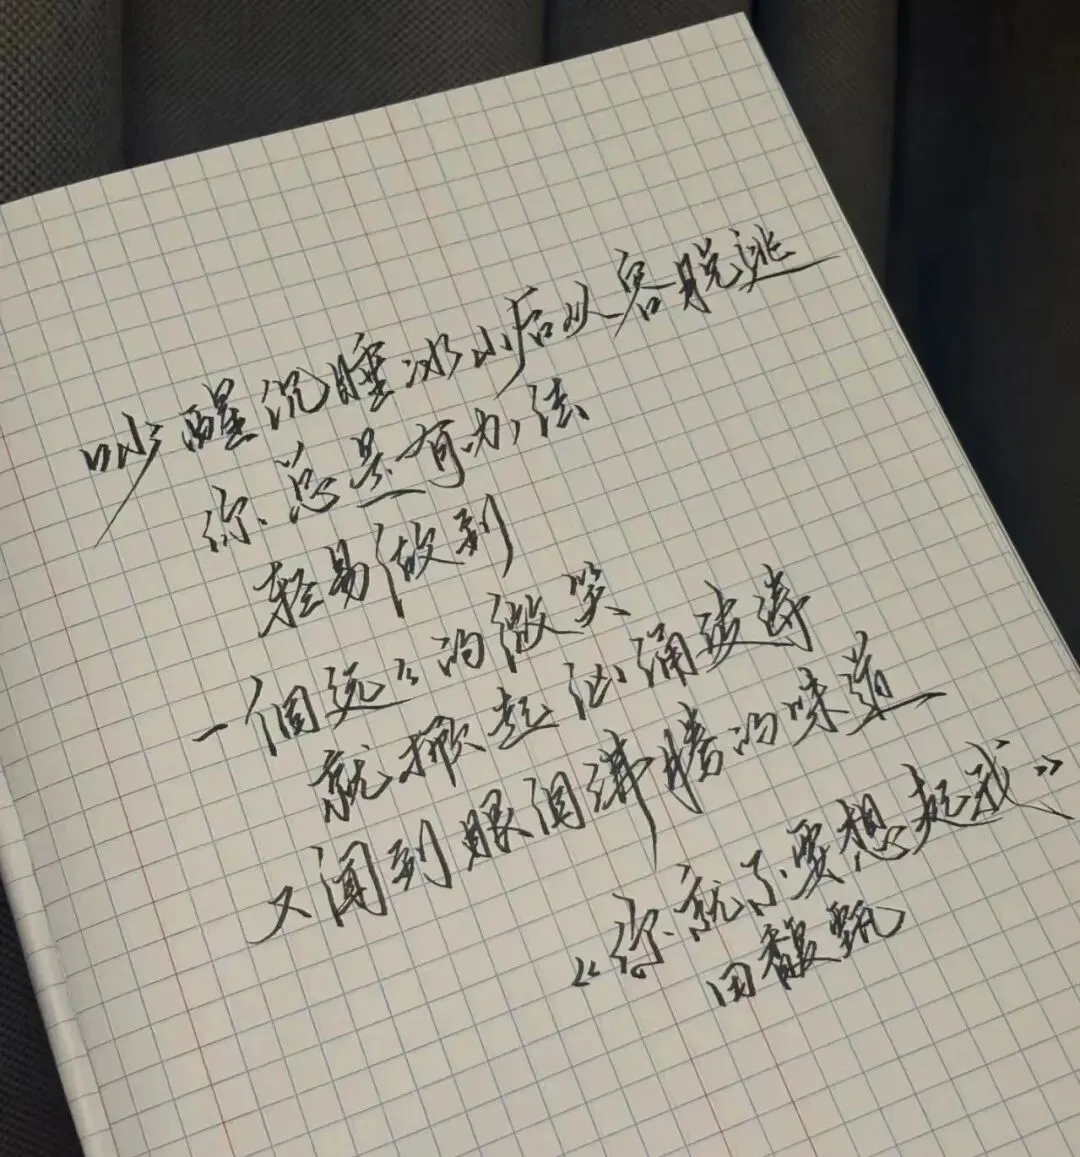 吵醒沉睡冰山后从容脱逃
你总是有办法
轻易做到
一個远远的微笑
就掀起汹涌波涛
又闻到眼泪沸腾的味道
《你就不要想起我》
田馥甄